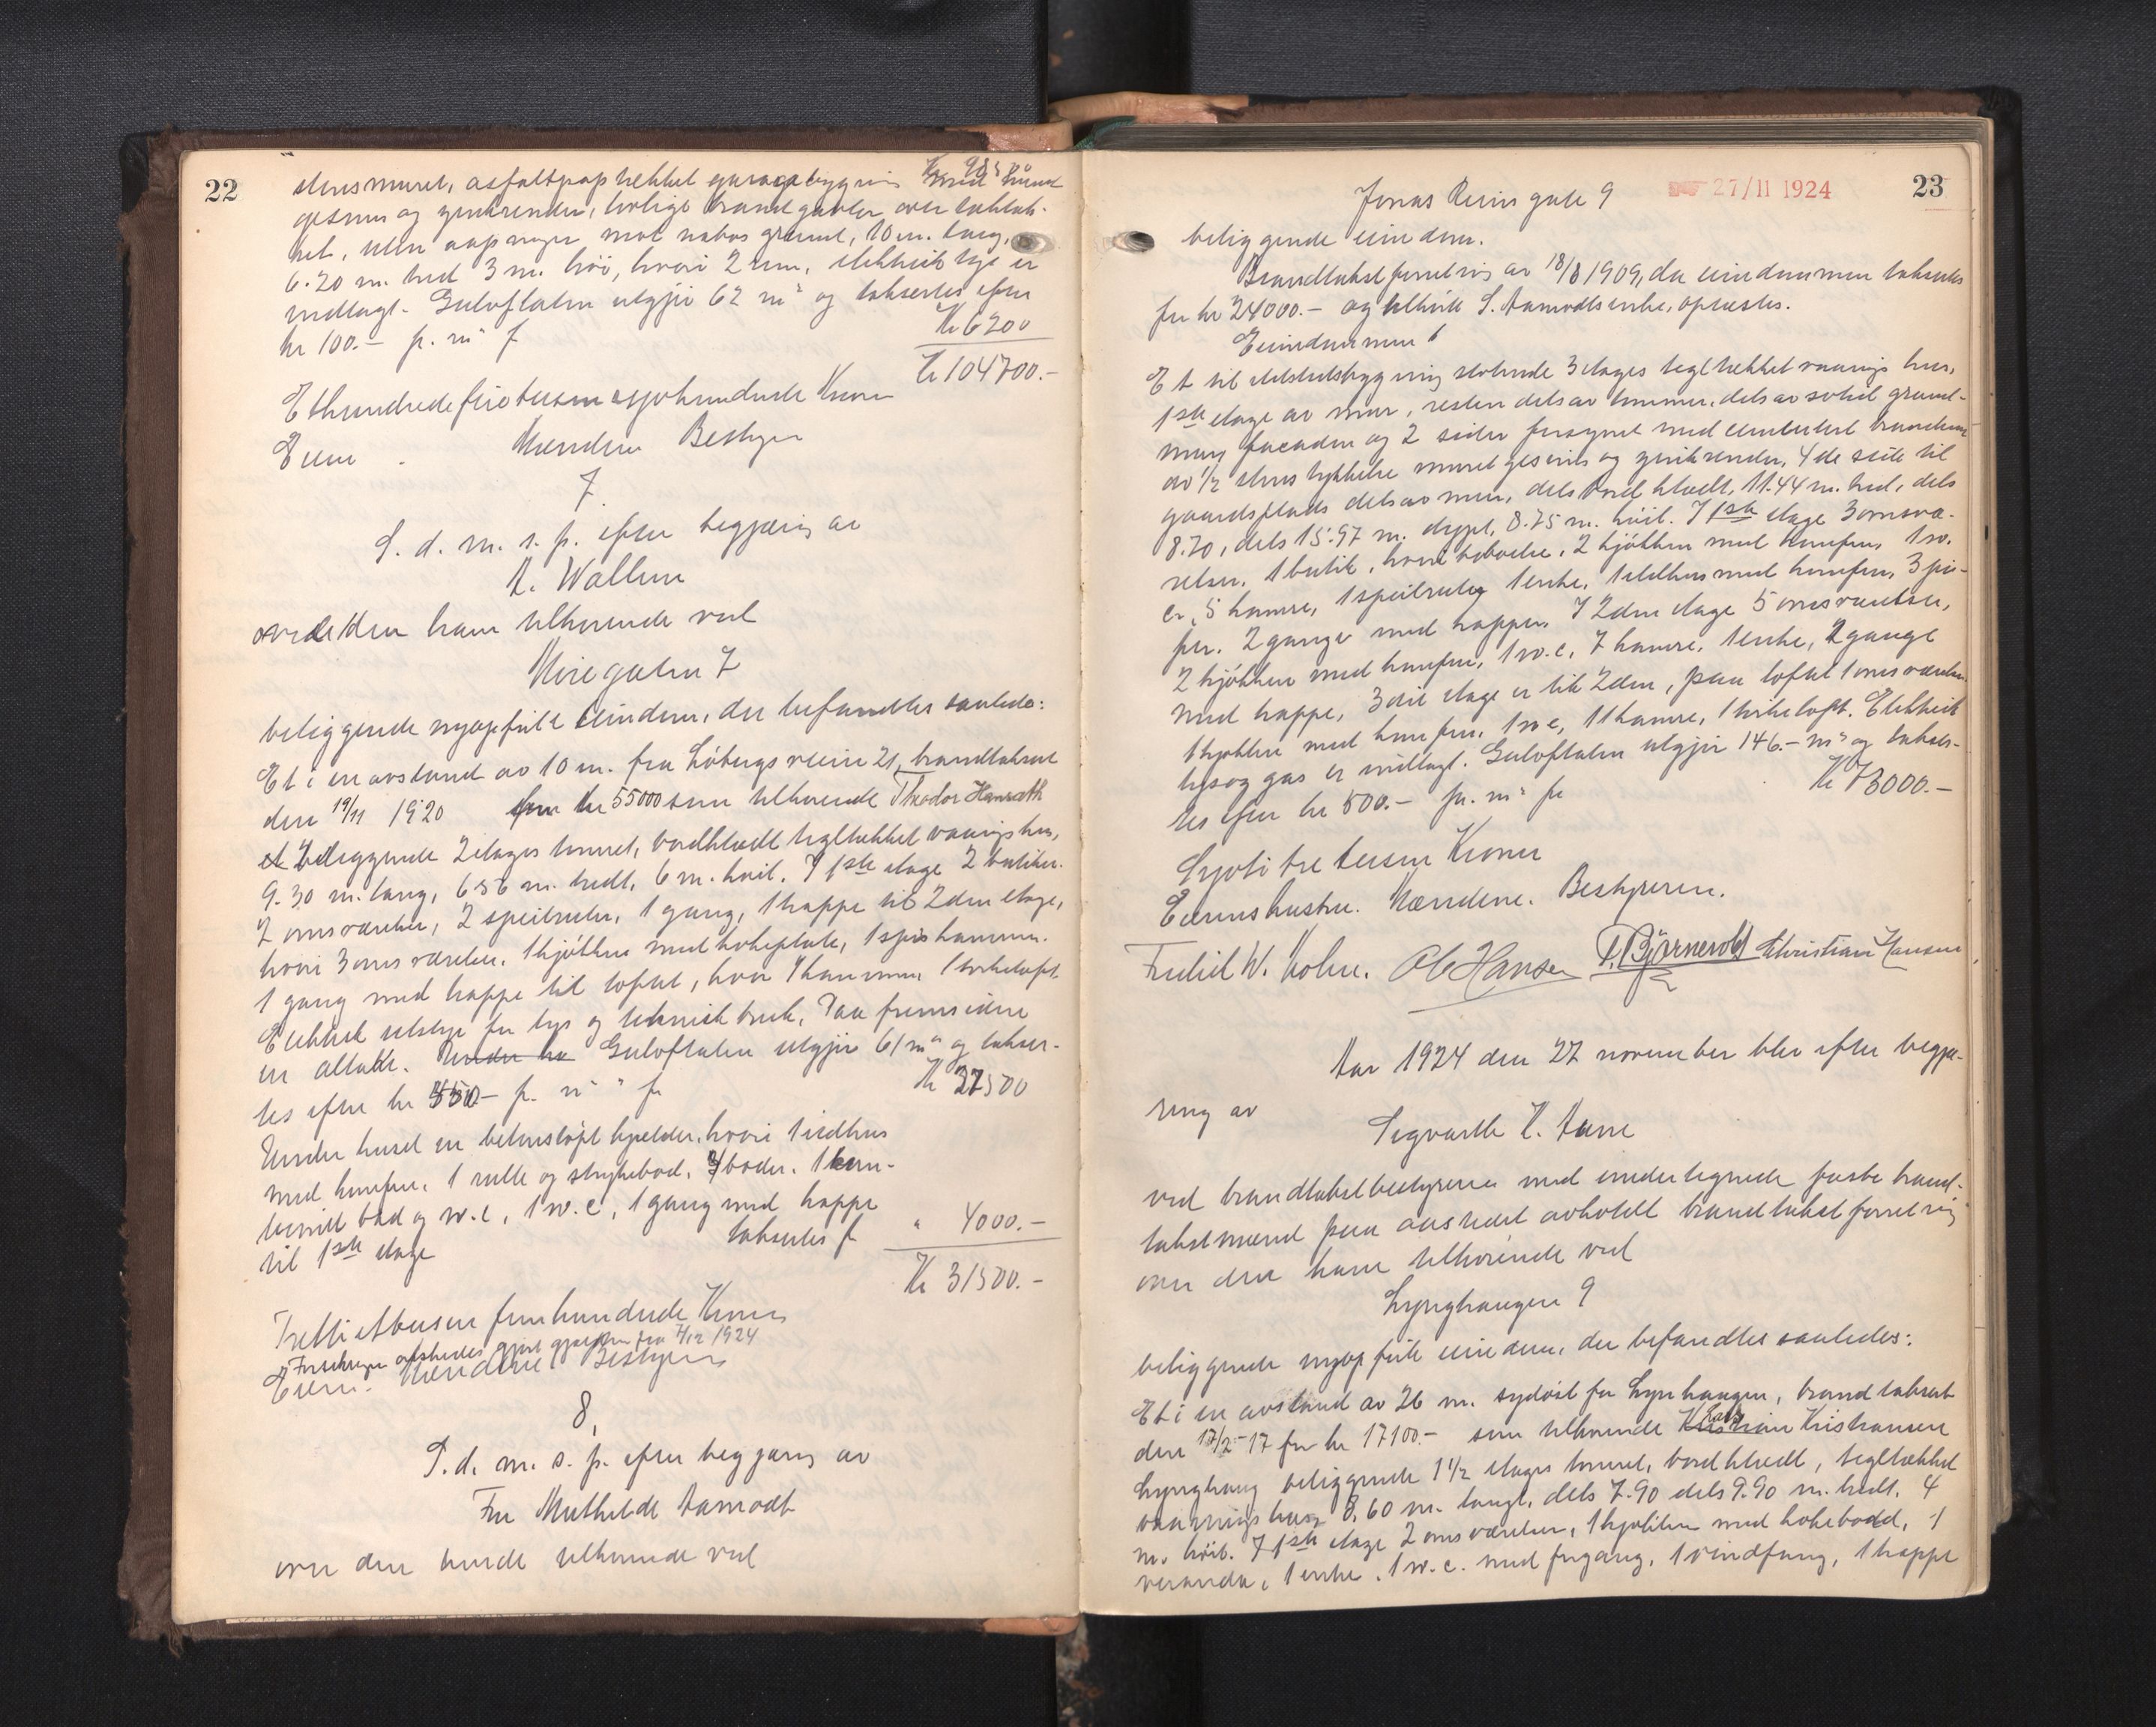 22
stensmuret, asfaltpap tekket garagebygning
gesims og zinkrender, lovlige brandgavler over taktæk-
ket, uten aapninger mot nabos grund, 10 m. lang,
6.20 m. bred 3 m. höi, hvori 2 rum, elektrisk lys er
indlagt. Gulvflaten utgjör 62 m² og takseres efter
kr 100.- pr. m² f
Kr 6200
Kr 104700.-
Ethundredefiretusensyvhundrede Kroner
Eieren. Mændene Bestyrer
7.
S. d. m. s. p. efter begjæring av
A. Wallem
over den ham tilhørende ved
Nöregaten 7
beliggende nyopførte eiendom, der befandtes saaledes:
Et i en avstand av 10 m. fra Löbergsveien 21, brandtaksert
den 19/11 1920 for kr 55000 som tilhørende Theodor Hanrath
beliggende 2 etages tømret, bordklædt tegltækket vaaningshus,
9.30 m. lang, 6.56 m. bredt, 6 m. höit. I 1ste etage 2 butiker.
2 omsværelser, 2 speilruter, 1 gang, 1 trappe til 2den etage,
hvori 3 omsværelser. 1 kjökken med kokeplate, 1 spiskammer.
1 gang med trappe til loftet, hvor 4 kammer, 1 törkeloft.
Elektrisk utstyr for lys og teknisk bruk. Paa fremsiden
en altan. Under hu Gulvflaten utgjör 61 m² og takser-
tes efter kr 450.- p. m² f
Kr 27500
Under huset en betonstöpt kjelder, hvori 1 ildhus
med komfur. 1 rulle og strykebod. boder. 1
bad og w.c, 1 w.c, 1 gang med trappe
til 1ste etage takseres f
" 4000.-
Kr 31500.-
Trettiettusen femhundrede Kroner
Forsikringen gjort gjælden fra 7/12 1924
Eieren. Mændene Bestyrer
8.
S. d. m. s. p. efter begjæring av
Fru Mathilde Aamodt
over den hende tilhørende ved
23
27/11 1924
Jonas Reins gate 9
beliggende eiendom.
Brandtakstforretning av 18/8 1909, da eiendommen taksertes
for kr 24000.- og tilhörte S. Aamodts enke, oplæstes.
Eiendommen
Et til sidstebygning stötende 3 etages tegltækket vaaningshus,
1ste etage av mur, resten dels av tømmer, dels av solid grund-
mur, facaden og 2 sider forsynet med cementert brandmur
av 1/2 stens tykkelse muret gesims og zinkrender, 4de side til
gaardsplads dels av mur, dels bord klædt, 11.44 m. bred, dels
8.70, dels 15.97 m. dypt, 8.75 m. höit. I 1ste etage 3 omsvæ-
relser. 1 butik, hvori beboelse, 2 kjökken med komfur, 1 w.
c., 5 kamre, 1 speilrute, 1 entre, 1 ildhus med komfur, 3 pi-
per. 2 gange med trapper. I 2den etage 5 omsværelser,
2 kjökken med komfur, 1 w.c, 7 kamre, 1 entre, 2 gange
med trappe, 3die etage er lik 2den, paa loftet 1 omsværelse
1 kjökken med komfur, 1 w c, 11 kamre, 1 törkeloft. Elektrisk
lys og gas er indlagt. Gulvflaten utgjör 146.- m² og takser-
tes efter kr 500.- pr. m² for
Kr 73000.-
Syttitre tusen Kroner
Eierens hustru. Mændene. Bestyreren.
Fredrik W. Holm. Ole Hansen P. Bjørnerold Christian Hansen
Aar 1924 den 27 november blev efter begjæ-
ring av
Sigvarth H. Aarre
ved brandtakstbestyreren med undertegnede faste brand-
takstmænd paa aastedet avholdt brandtakstforretning
over den ham tilhørende ved
Lynghaugen 9
beliggende nyopførte eiendom, der befandtes saaledes:
Et i en avstand av 26 m. sydöst for Lynghaugen, brandtaksert
den 17/2-17 for kr 17100.- som tilhørende Kristiansen
Lynghaug beliggende 1 1/2 etages tømret, bordklædt, tegltækket
vaaningshus, 8.60 m. langt, dels 7.90 dels 9.90 m. bredt, 4
m. höit. I 1ste etage 2 omsværelser, 1 kjökken med kokebord, 1
veranda, 1 entre, 1 w.c. med forgang, 1 vindfang, 1 trappe